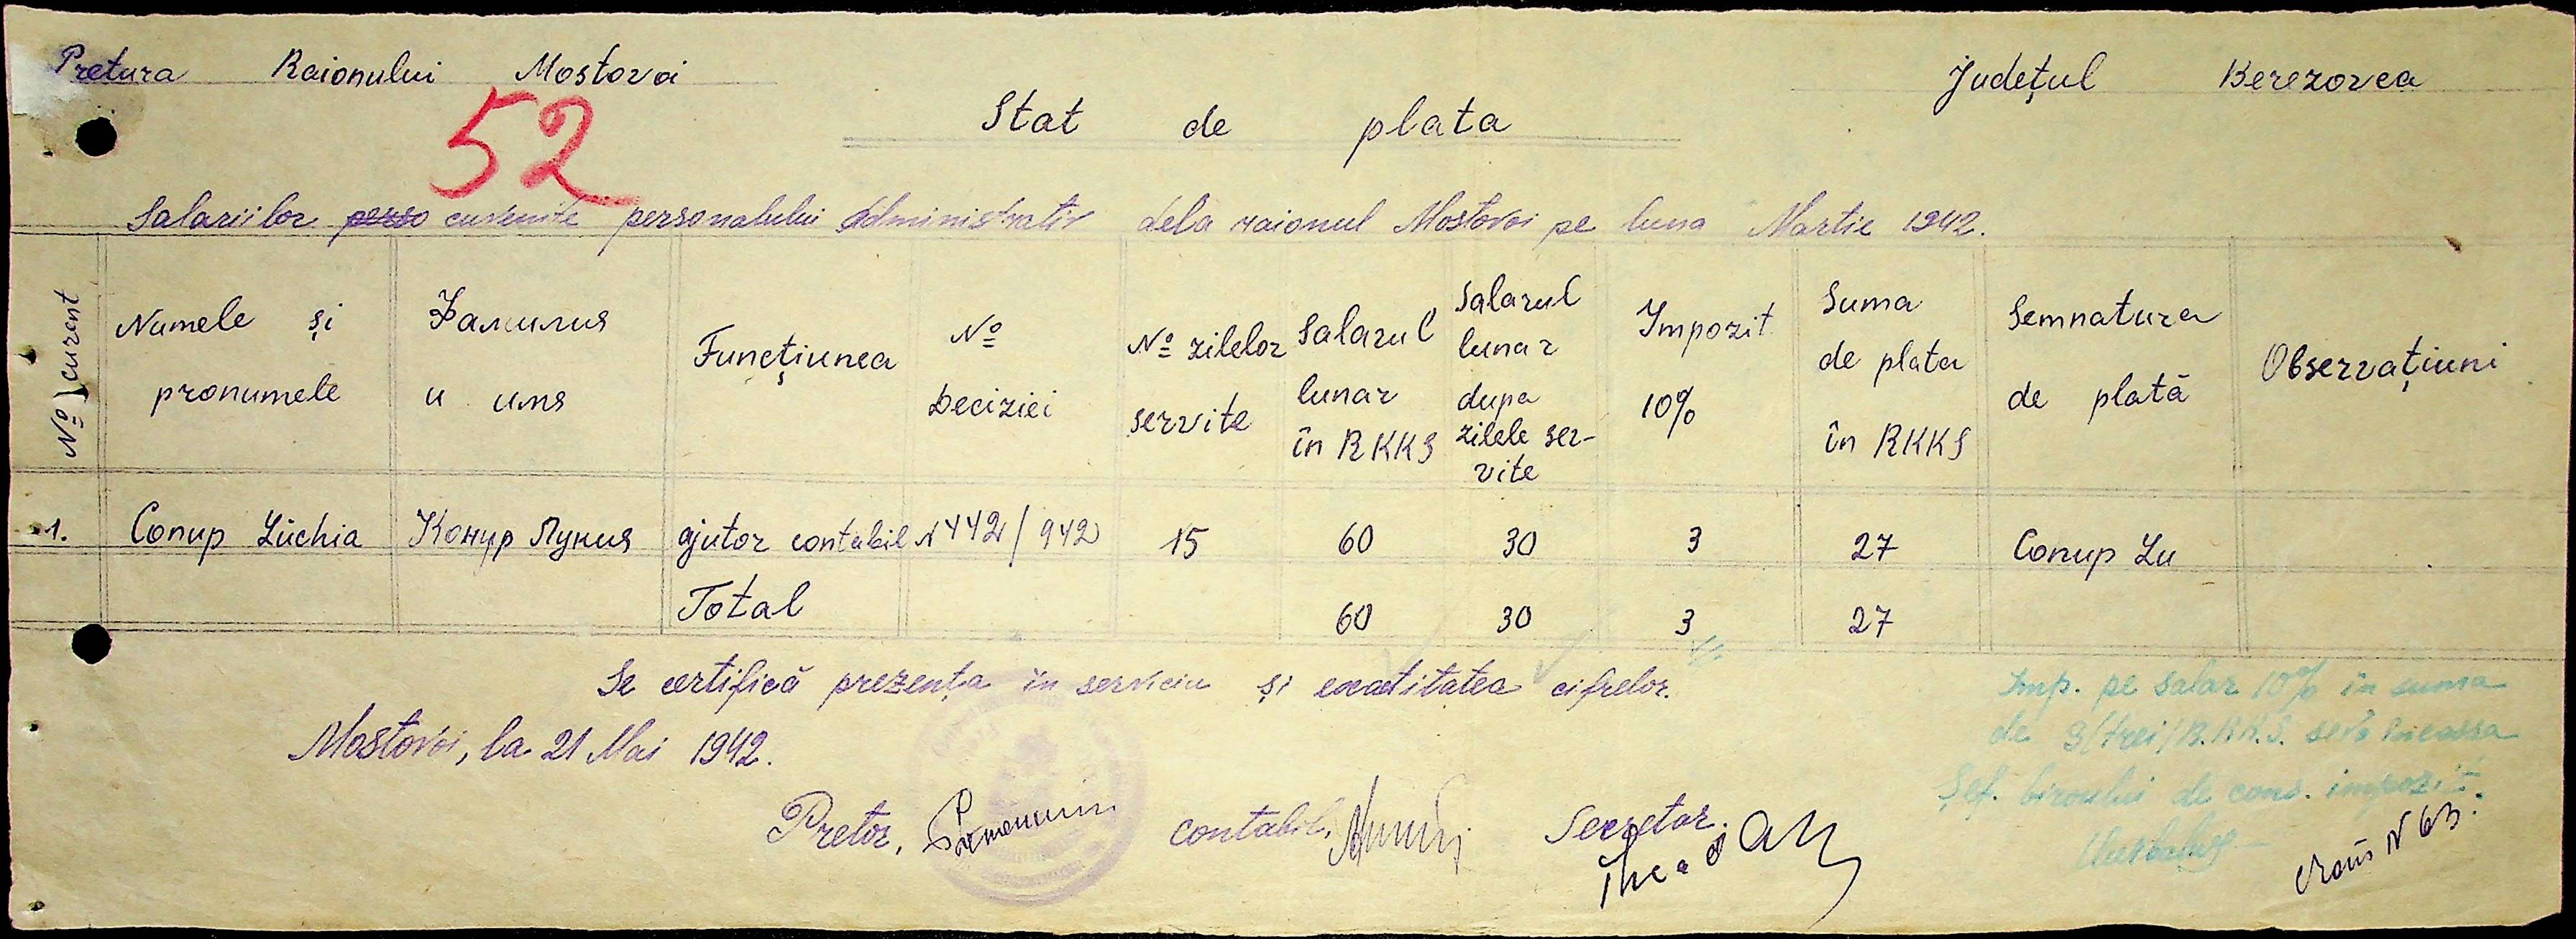 Pretura Raionului Mostovoi
Județul Berezovca
52
Stat de plata
Salariilor perso cuvenite personalului administrativ dela raionul Mostovoi pe luna Martie 1942.
№ curent
Numele și pronumele
Фамилия и имя
Funcțiunea
№ Deciziei
№ zilelor servite
Salarul lunar în RKKS
Salarul lunar dupa zilele ser-vite
Impozit 10%
Suma de plata în RKKS
Semnatura de plată
Observațiuni
1. Conup Luchia Конур Лукия ajutor contabil N 442/942 15 60 30 3 27 Conup Lu
Total 60 30 3 27
Se certifică prezența in serviciu și exactitatea cifrelor.
Mostovoi, la 21 Mai 1942.
Imp. pe salar 10% in suma
de 3/trei/R.K.K.S. se va incassa
Șef. biroului de cons. impozit
Pretor, contabil, Secretar.
N 63.